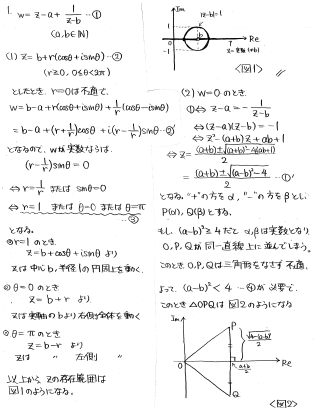 1. w = z-a + 1/(z-b) …①
(a,b∈ℕ)
(1) z = b+r(cosθ+isinθ) …②
(r≧0, 0≦θ<2π)
としたとき、r=0は不適で、
w = b-a+r(cosθ+isinθ)+1/r(cosθ-isinθ)
= b-a+(r+1/r)cosθ + i(r-1/r)sinθ
となるので、wが実数ならば、
(r-1/r)sinθ = 0
⇔ r=1/r または sinθ=0
⇔ r=1 または θ=0 または θ=π
③
となる。
r=1 のとき
z = b+cosθ+isinθ より
zは中心b, 半径1の円周上を動く.
θ=0 のとき
z = b+r より
zは実軸のbより右側全体を動く
θ=πのとき
z = b-r より
zは 〃 左側 〃
以上から zの存在範囲は
図1のようになる。
Im
|z-b|=1
1
b
Re
-1
<図1>
(2) w=0 のとき.
①⇔ z-a = -1/(z-b)
⇔ (z-a)(z-b) = -1
⇔ z²-(a+b)z+ab+1
⇔ z = (a+b)±√((a+b)²-4(ab+1)) / 2
= (a+b)±√((a-b)²-4) / 2 …①'
となる。"+"の方をα, "-"の方をβとし
P(α), Q(β)とする。
もし (a-b)²≧4だと α,βは実数となり
O,P,Qが同一直線上に並んでしまう。
このとき O,P,Qは三角形をなさず 不適.
よって (a-b)²<4 …④が必要で、
このとき △OPQは図2のようになる
Im
P
Re
Q
(a+b)/2
<図2>